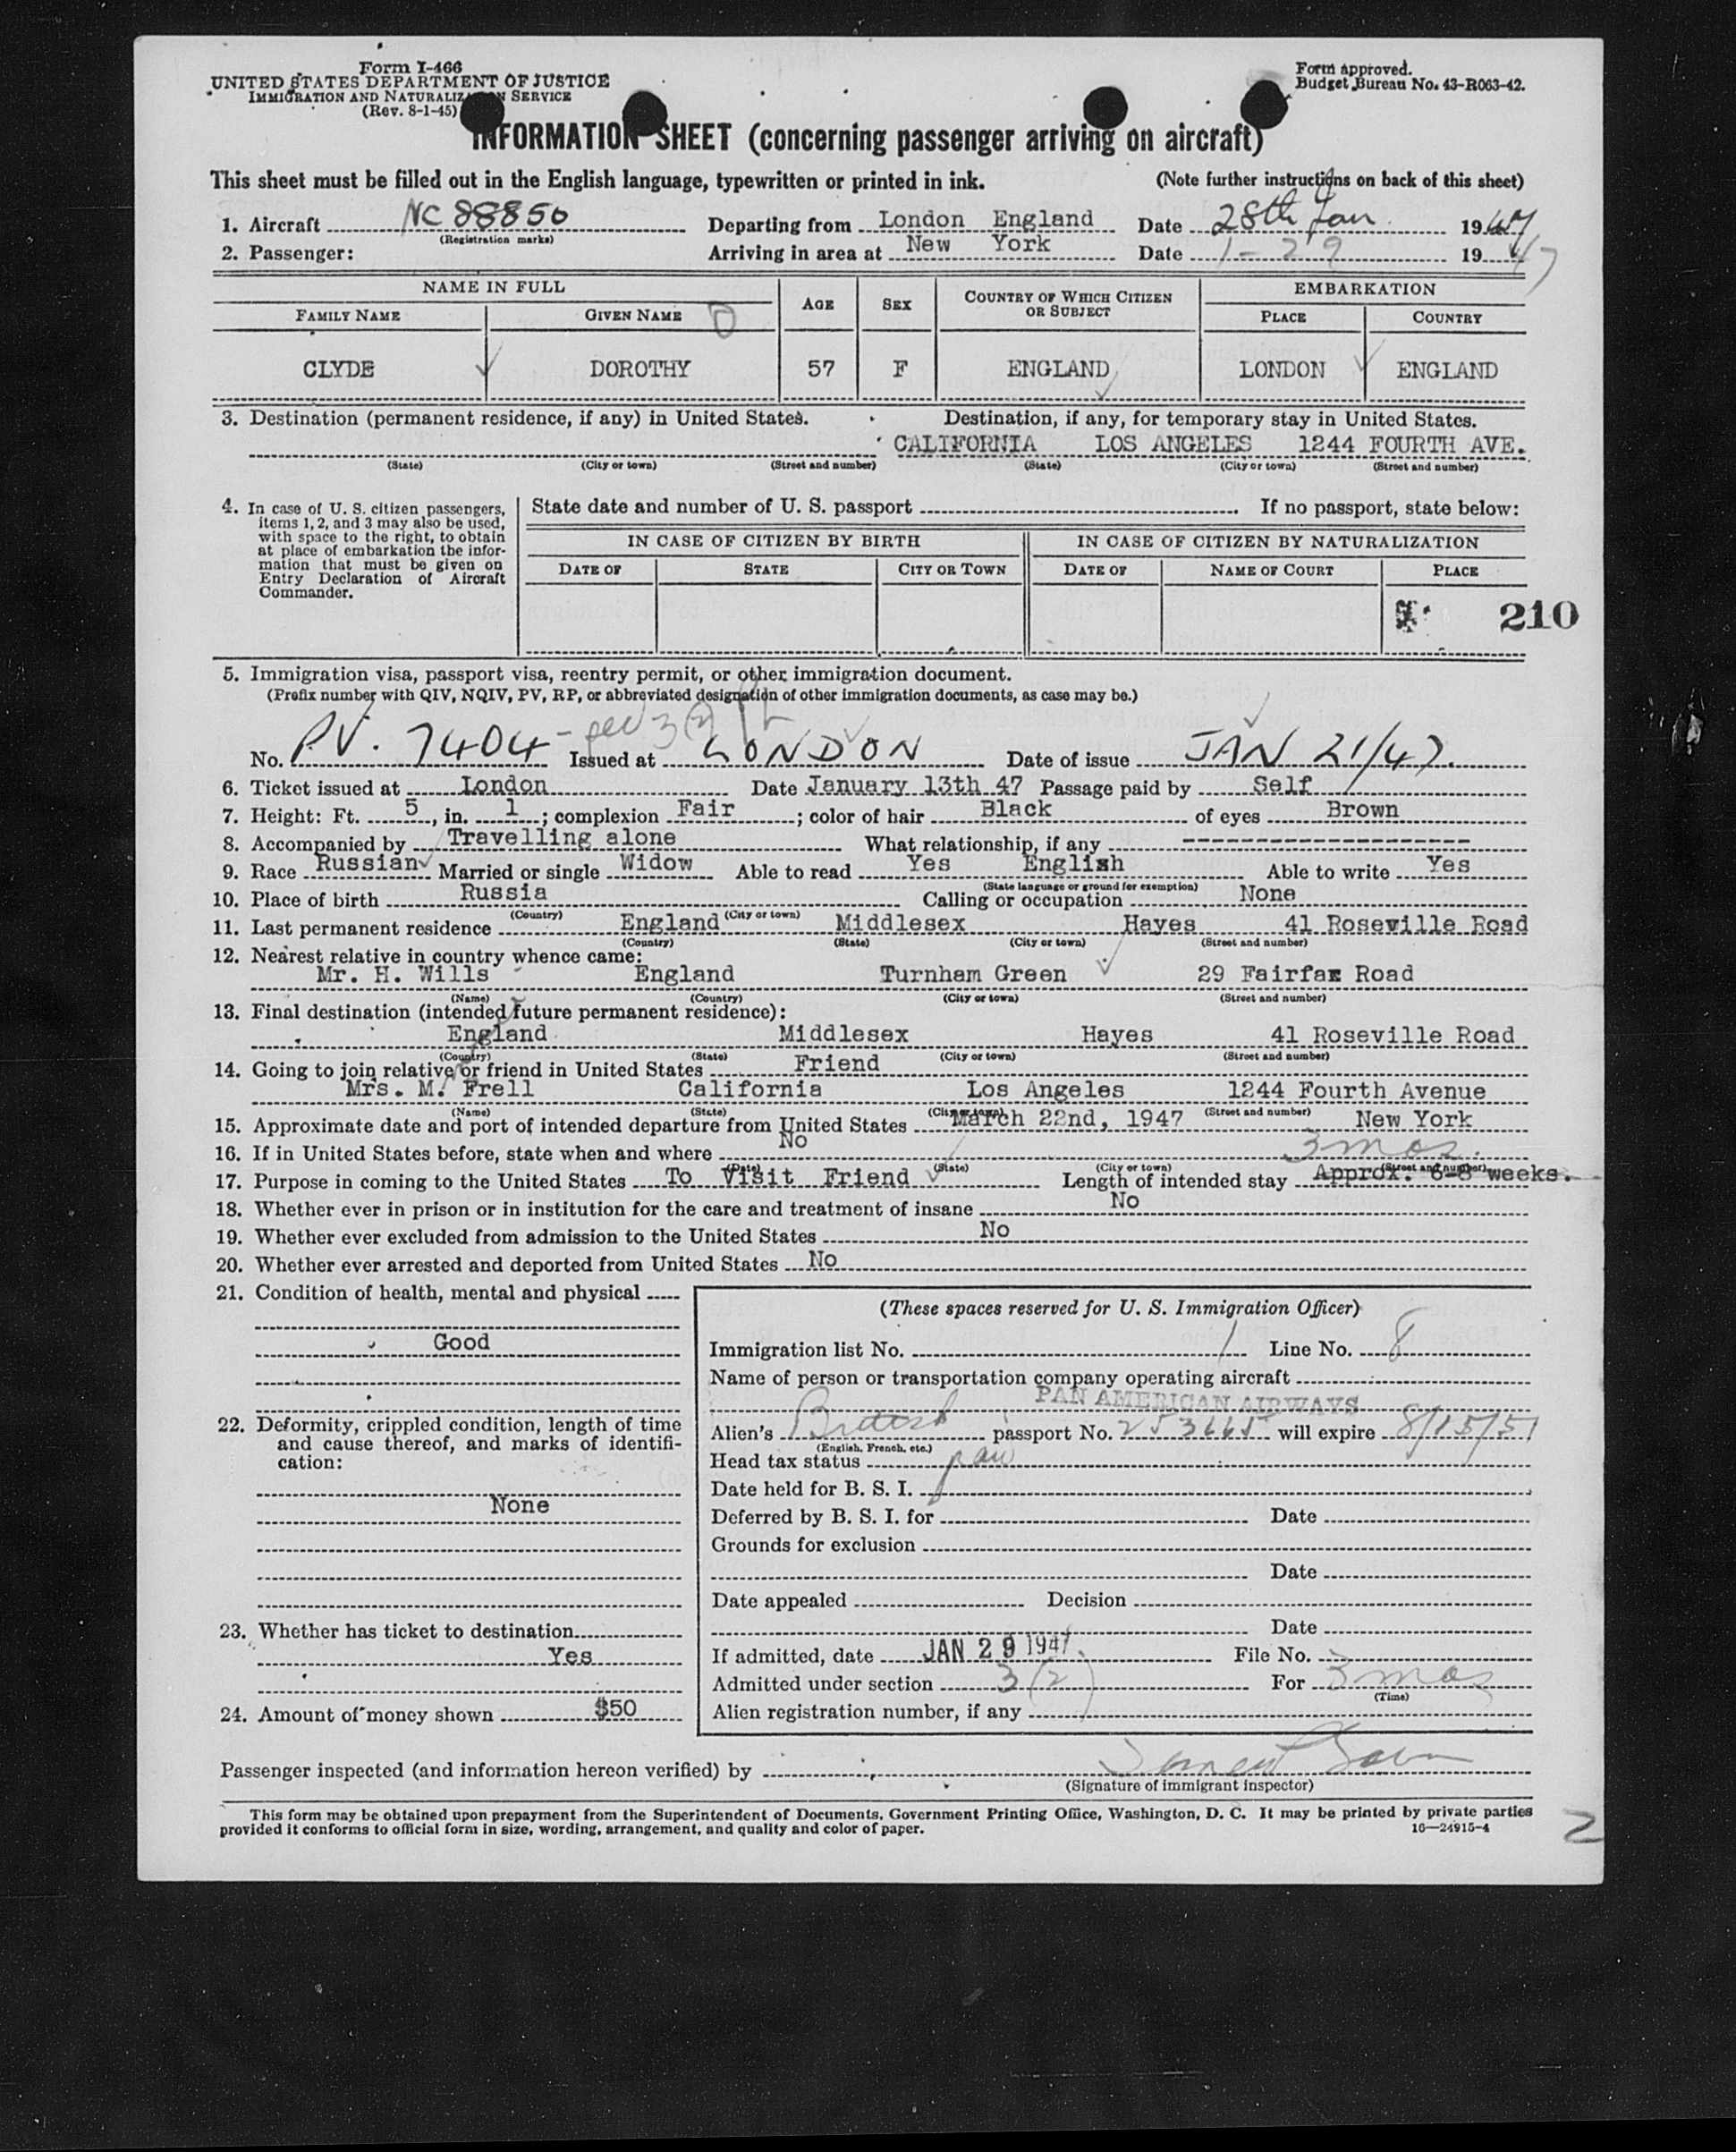 Form I-466
UNITED STATES DEPARTMENT OF JUSTICE
IMMIGRATION AND NATURALIZATION SERVICE
(Rev. 8-1-45)
Form approved.
Budget Bureau No. 43-R063-42.
INFORMATION SHEET (concerning passenger arriving on aircraft)
This sheet must be filled out in the English language, typewritten or printed in ink. (Note further instructions on back of this sheet)
1. Aircraft NC 88850 Departing from London England Date 28th Jan 1947
(Registration marks)
2. Passenger: Arriving in area at New York Date 1-29 1947
NAME IN FULL AGE SEX COUNTRY OF WHICH CITIZEN OR SUBJECT EMBARKATION
FAMILY NAME GIVEN NAME PLACE COUNTRY
CLYDE DOROTHY 57 F ENGLAND LONDON ENGLAND
3. Destination (permanent residence, if any) in United States. Destination, if any, for temporary stay in United States.
CALIFORNIA LOS ANGELES 1244 FOURTH AVE.
(State) (City or town) (Street and number) (State) (City or town) (Street and number)
4. In case of U. S. citizen passengers, items 1, 2, and 3 may also be used, with space to the right, to obtain at place of embarkation the information that must be given on Entry Declaration of Aircraft Commander.
State date and number of U. S. passport If no passport, state below:
IN CASE OF CITIZEN BY BIRTH IN CASE OF CITIZEN BY NATURALIZATION
DATE OF STATE CITY OR TOWN DATE OF NAME OF COURT PLACE
210
5. Immigration visa, passport visa, reentry permit, or other immigration document.
(Prefix number with QIV, NQIV, PV, RP, or abbreviated designation of other immigration documents, as case may be.)
No. P.V. 7404 3(2) Issued at LONDON Date of issue JAN 21/47.
6. Ticket issued at London Date January 13th 47 Passage paid by Self
7. Height: Ft. 5, in. 1; complexion Fair; color of hair Black of eyes Brown
8. Accompanied by Travelling alone What relationship, if any
9. Race Russian Married or single Widow Able to read Yes English Able to write Yes
(State language or ground for exemption)
10. Place of birth Russia Calling or occupation None
(Country) (City or town)
11. Last permanent residence England Middlesex Hayes 41 Roseville Road
(Country) (State) (City or town) (Street and number)
12. Nearest relative in country whence came:
Mr. H. Wills England Turnham Green 29 Fairfax Road
(Name) (Country) (City or town) (Street and number)
13. Final destination (intended future permanent residence):
England Middlesex Hayes 41 Roseville Road
(Country) (State) (City or town) (Street and number)
14. Going to join relative or friend in United States Friend
Mrs. M. Frell California Los Angeles 1244 Fourth Avenue
(Name) (State) (City or town) (Street and number)
15. Approximate date and port of intended departure from United States March 22nd, 1947 New York
16. If in United States before, state when and where No
3 mos.
(Date) (State) (City or town) (Street and number)
17. Purpose in coming to the United States To Visit Friend Length of intended stay Approx. 6-8 weeks.
18. Whether ever in prison or in institution for the care and treatment of insane No
19. Whether ever excluded from admission to the United States No
20. Whether ever arrested and deported from United States No
21. Condition of health, mental and physical
Good
22. Deformity, crippled condition, length of time and cause thereof, and marks of identification:
None
23. Whether has ticket to destination
Yes
24. Amount of money shown $50
(These spaces reserved for U. S. Immigration Officer)
Immigration list No. 1 Line No. 8
Name of person or transportation company operating aircraft
PAN AMERICAN AIRWAYS
Alien's British passport No. 253665 will expire 8/15/51
(English, French, etc.)
Head tax status
Date held for B. S. I.
Deferred by B. S. I. for Date
Grounds for exclusion
Date
Date appealed Decision
Date
If admitted, date JAN 29 1947 File No.
Admitted under section 3(2) For 3 mos
(Time)
Alien registration number, if any
Passenger inspected (and information hereon verified) by
(Signature of immigrant inspector)
This form may be obtained upon prepayment from the Superintendent of Documents, Government Printing Office, Washington, D. C. It may be printed by private parties
provided it conforms to official form in size, wording, arrangement, and quality and color of paper. 16—24915-4
2